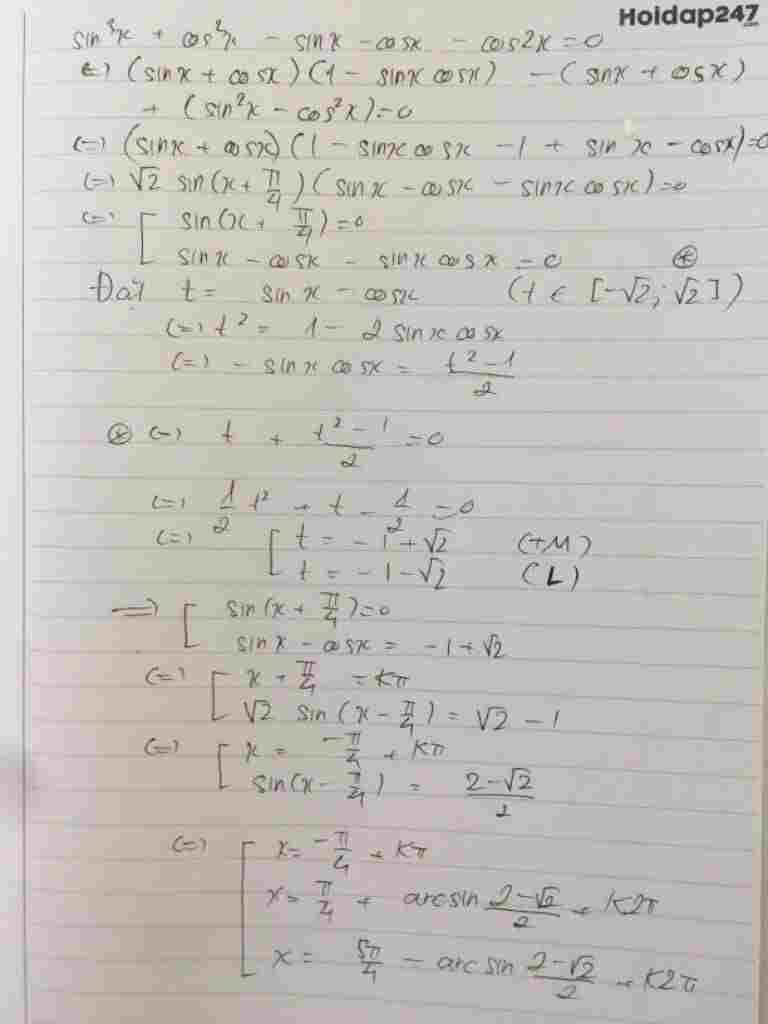 Hoidap247.com
sin³x + cos³x - sinx - cosx - cos2x = 0
(=) (sinx + cosx)(1 - sinx cosx) - (sinx + cosx)
+ (sin²x - cos²x) = 0
(=) (sinx + cosx)(1 - sinx cosx - 1 + sinx - cosx) = 0
(=) √2 sin(x + π/4)(sinx - cosx - sinx cosx) = 0
(=) [ sin(x + π/4) = 0
sinx - cosx - sinx cosx = 0 (*)
Đặt t = sinx - cosx (t ∈ [-√2; √2])
(=) t² = 1 - 2 sinx cosx
(=) - sinx cosx = (t² - 1)/2
(*) (=) t + (t² - 1)/2 = 0
(=) 1/2 t² + t - 1/2 = 0
(=) [ t = -1 + √2 (TM)
t = -1 - √2 (L)
=> [ sin(x + π/4) = 0
sinx - cosx = -1 + √2
(=) [ x + π/4 = kπ
√2 sin(x - π/4) = √2 - 1
(=) [ x = -π/4 + kπ
sin(x - π/4) = (2 - √2)/2
(=) [ x = -π/4 + kπ
x = π/4 + arcsin (2 - √2)/2 + k2π
x = 5π/4 - arcsin (2 - √2)/2 + k2π